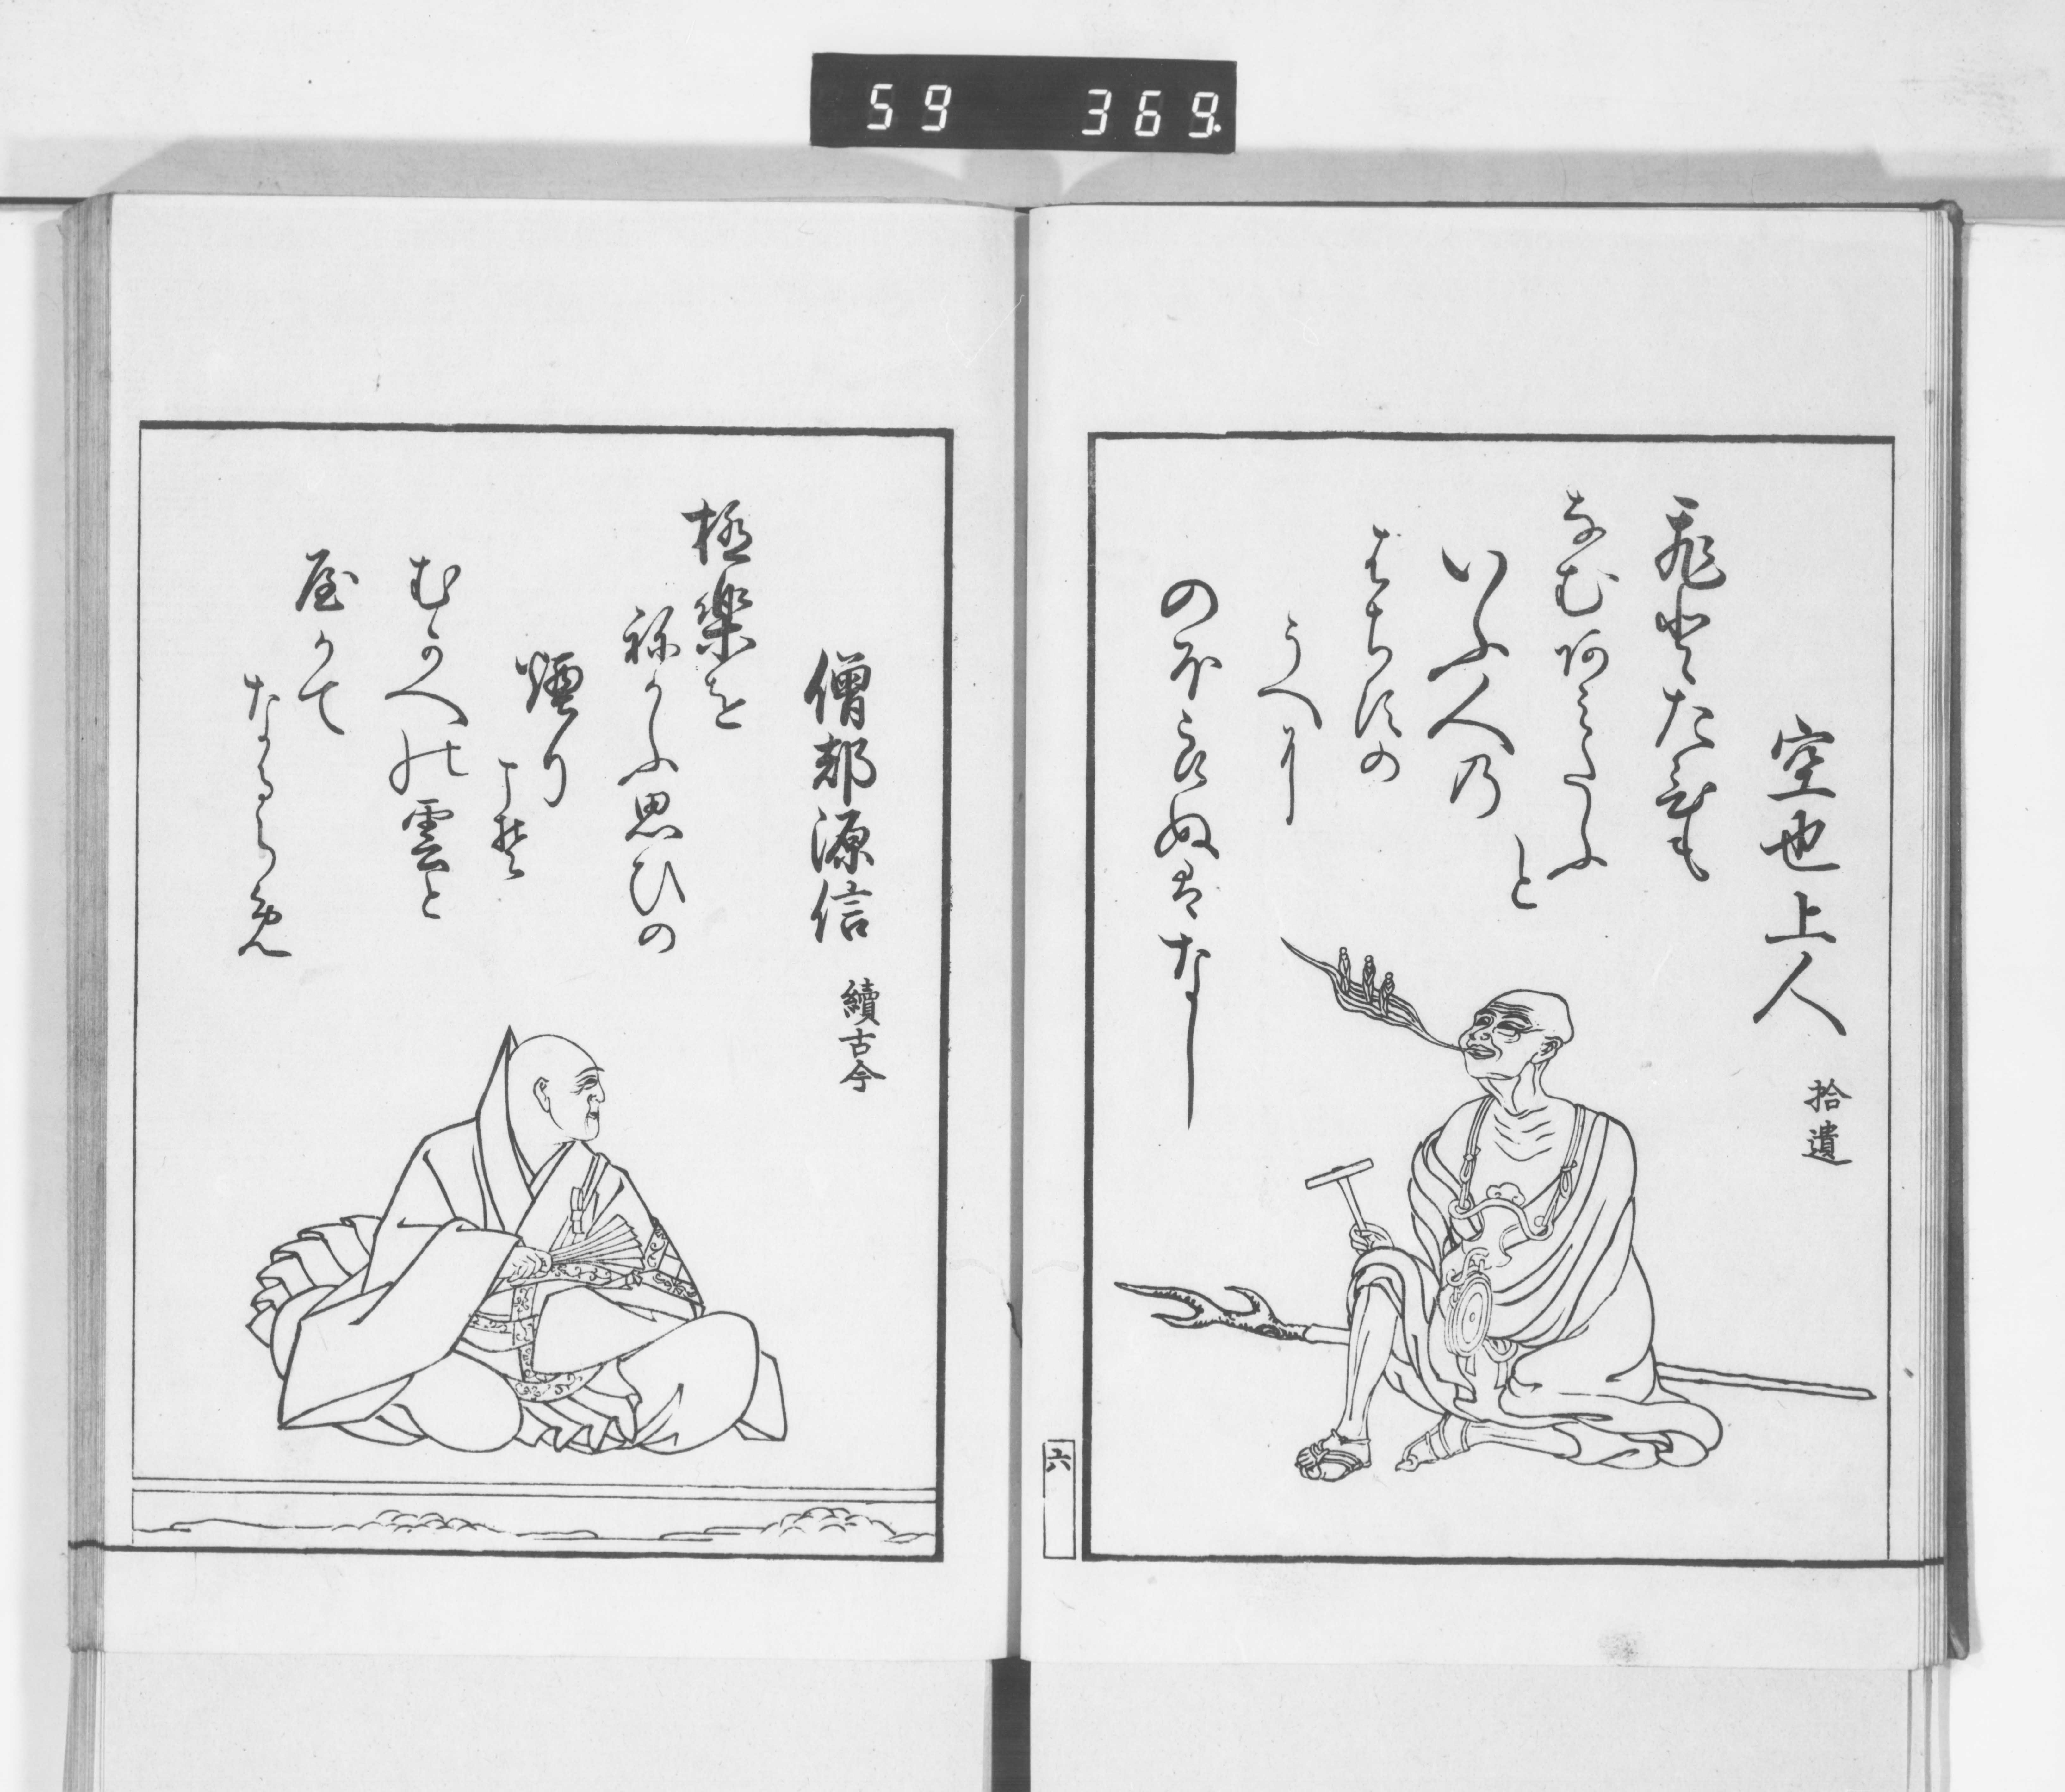 59 369
空也上人 拾遺
ひとたびも
なむ阿みたふ
と
いふ人の
はちすの
うへに
のぼらぬはなし
六
僧都源信 續古今
極樂を
ねかふ思ひの
煙り
こそ
むかへの雲と
やかて
なるらめ